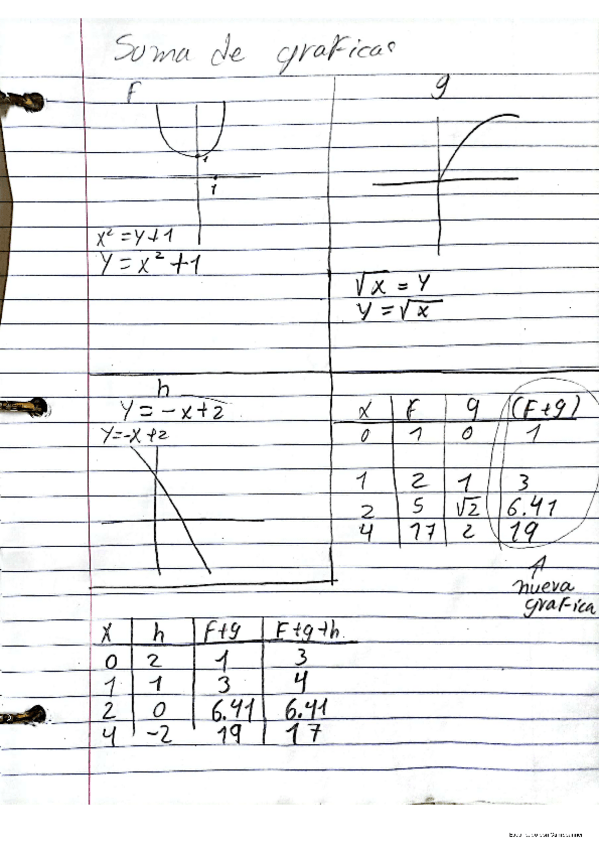 Suma de graficas
F
g
1
1
x² = y+1
y = x² + 1
√x = y
y = √x
h
y = -x+2
y=-x+2
x F g (F+g)
0 1 0 1
1 2 1 3
2 5 √2 6.41
4 17 2 19
nueva
grafica
x h F+g F+g+h
0 2 1 3
1 1 3 4
2 0 6.41 6.41
4 -2 19 17